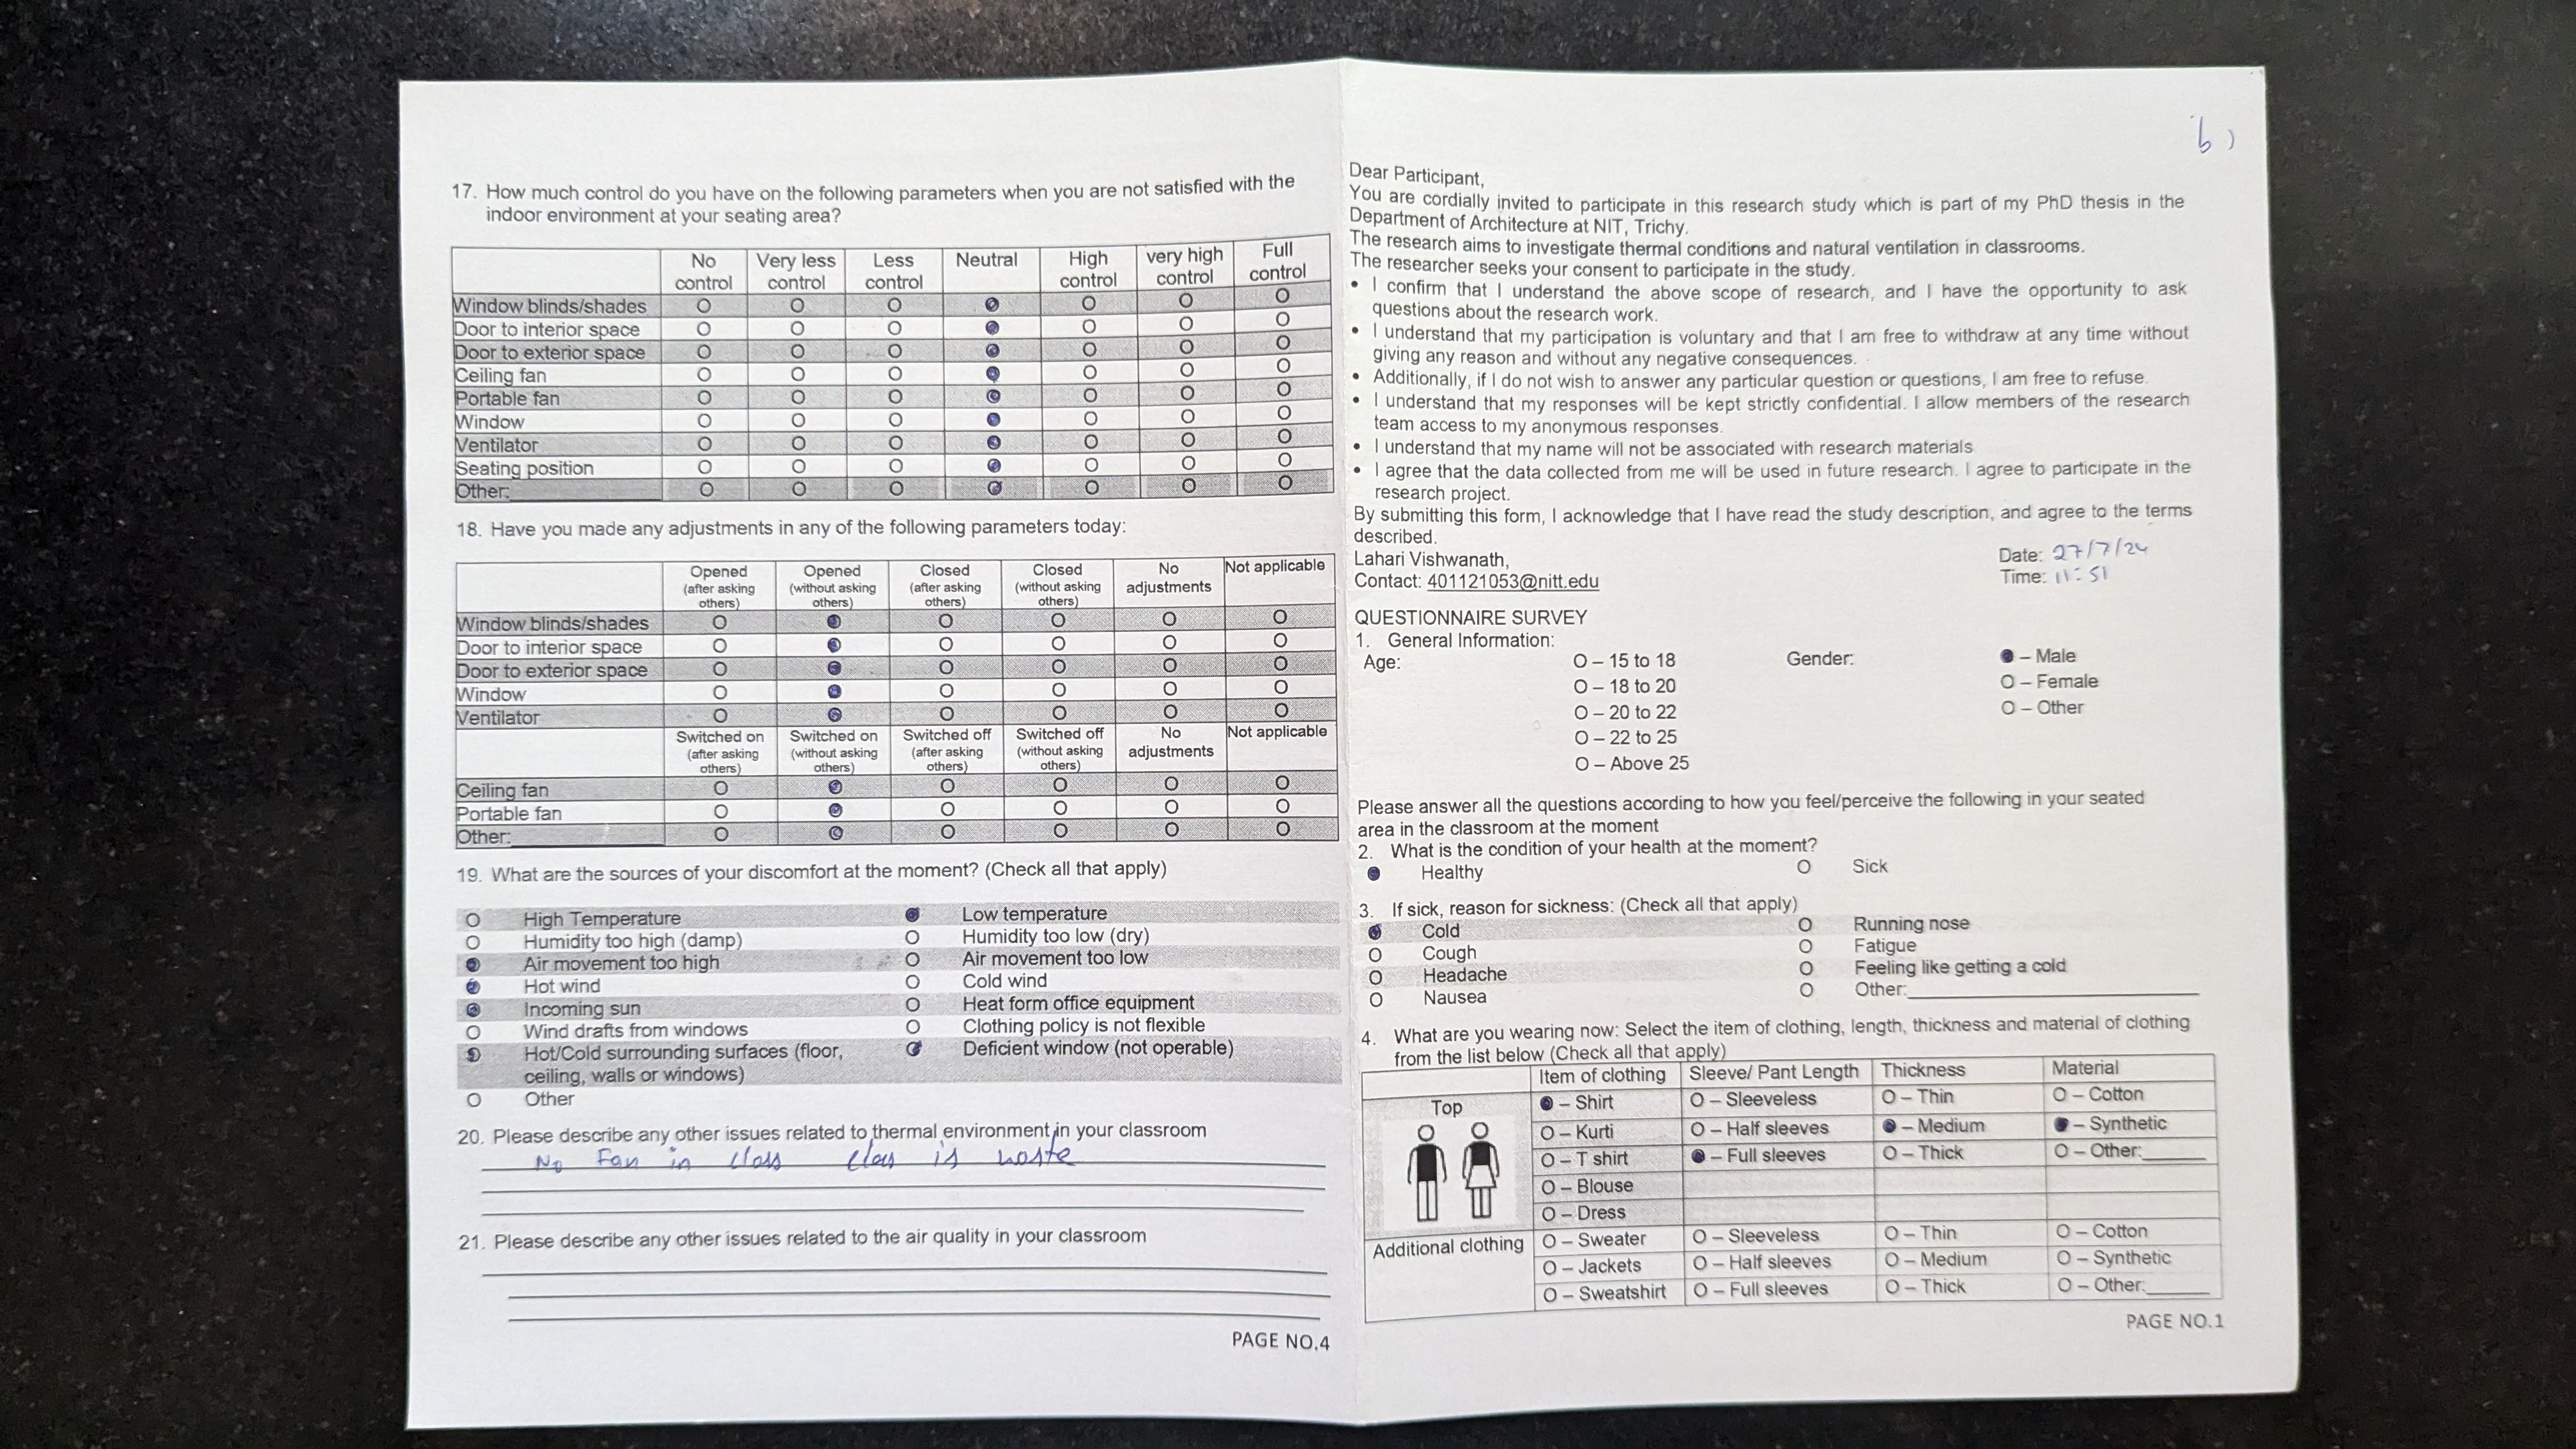 17. How much control do you have on the following parameters when you are not satisfied with the
indoor environment at your seating area?
No control Very less control Less control Neutral High control very high control Full control
Window blinds/shades O O O O O O
Door to interior space O O O O O O
Door to exterior space O O O O O O
Ceiling fan O O O O O O
Portable fan O O O O O O
Window O O O O O O
Ventilator O O O O O O
Seating position O O O O O O
Other: O O O O O O
18. Have you made any adjustments in any of the following parameters today:
Opened (after asking others) Opened (without asking others) Closed (after asking others) Closed (without asking others) No adjustments Not applicable
Window blinds/shades O O O O O
Door to interior space O O O O O
Door to exterior space O O O O O
Window O O O O O
Ventilator O O O O O
Switched on (after asking others) Switched on (without asking others) Switched off (after asking others) Switched off (without asking others) No adjustments Not applicable
Ceiling fan O O O O O
Portable fan O O O O O
Other: O O O O O
19. What are the sources of your discomfort at the moment? (Check all that apply)
O High Temperature Low temperature
O Humidity too high (damp) O Humidity too low (dry)
Air movement too high O Air movement too low
Hot wind O Cold wind
Incoming sun O Heat form office equipment
O Wind drafts from windows O Clothing policy is not flexible
Hot/Cold surrounding surfaces (floor, Deficient window (not operable)
ceiling, walls or windows)
O Other
20. Please describe any other issues related to thermal environment in your classroom
No Fan in class class is waste
21. Please describe any other issues related to the air quality in your classroom
PAGE NO.4
6)
Dear Participant,
You are cordially invited to participate in this research study which is part of my PhD thesis in the
Department of Architecture at NIT, Trichy.
The research aims to investigate thermal conditions and natural ventilation in classrooms.
The researcher seeks your consent to participate in the study.
• I confirm that I understand the above scope of research, and I have the opportunity to ask
questions about the research work.
• I understand that my participation is voluntary and that I am free to withdraw at any time without
giving any reason and without any negative consequences.
• Additionally, if I do not wish to answer any particular question or questions, I am free to refuse.
• I understand that my responses will be kept strictly confidential. I allow members of the research
team access to my anonymous responses.
• I understand that my name will not be associated with research materials
• I agree that the data collected from me will be used in future research. I agree to participate in the
research project.
By submitting this form, I acknowledge that I have read the study description, and agree to the terms
described.
Lahari Vishwanath, Date: 27/7/24
Contact: 401121053@nitt.edu Time: 11:51
QUESTIONNAIRE SURVEY
1. General Information:
Age: O – 15 to 18 Gender: – Male
O – 18 to 20 O – Female
O – 20 to 22 O – Other
O – 22 to 25
O – Above 25
Please answer all the questions according to how you feel/perceive the following in your seated
area in the classroom at the moment
2. What is the condition of your health at the moment?
Healthy O Sick
3. If sick, reason for sickness: (Check all that apply)
Cold O Running nose
O Cough O Fatigue
O Headache O Feeling like getting a cold
O Nausea O Other:
4. What are you wearing now: Select the item of clothing, length, thickness and material of clothing
from the list below (Check all that apply)
Item of clothing Sleeve/ Pant Length Thickness Material
Top – Shirt O – Sleeveless O – Thin O – Cotton
O – Kurti O – Half sleeves – Medium – Synthetic
O – T shirt – Full sleeves O – Thick O – Other:
O – Blouse
O – Dress
Additional clothing O – Sweater O – Sleeveless O – Thin O – Cotton
O – Jackets O – Half sleeves O – Medium O – Synthetic
O – Sweatshirt O – Full sleeves O – Thick O – Other:
PAGE NO.1